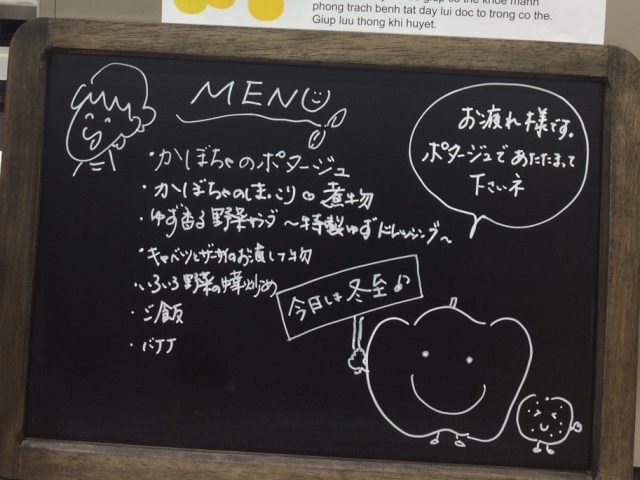 phong trach benh tat day lui doc to trong co the.
Giup luu thong khi huyet.
MENU
・かぼちゃのポタージュ
・かぼちゃのほっこり♡煮物
・ゆず香る野菜サラダ～特製ゆずドレッシング～
・キャベツとザーサイのお浸し
・いろいろ野菜の中華炒め
・ご飯
・パン
お疲れ様です。
ポタージュであたたまって
下さいネ
今日は冬至♪